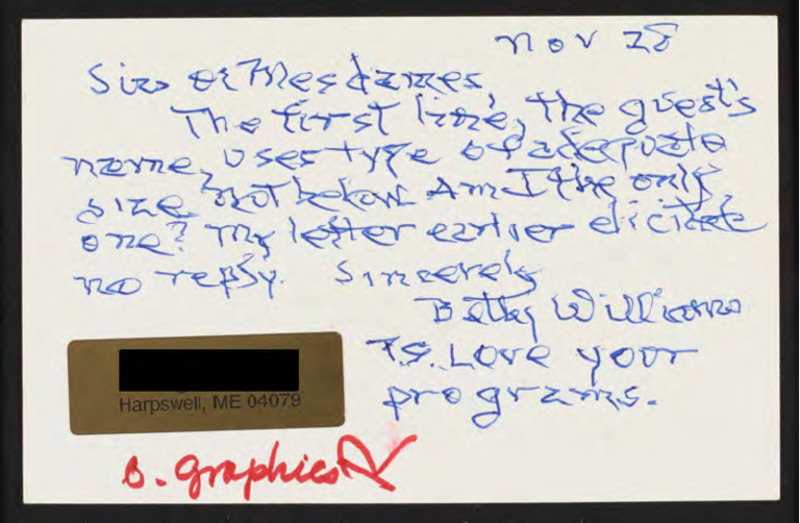 Nov 28
Sirs or Mesdames,
The first line, the guest's
name, uses type of adequate
size, not below. Am I the only
one? My letter earlier elicited
no reply. Sincerely
Betty Williams
P.S. Love your
programs.
Harpswell, ME 04079
graphics